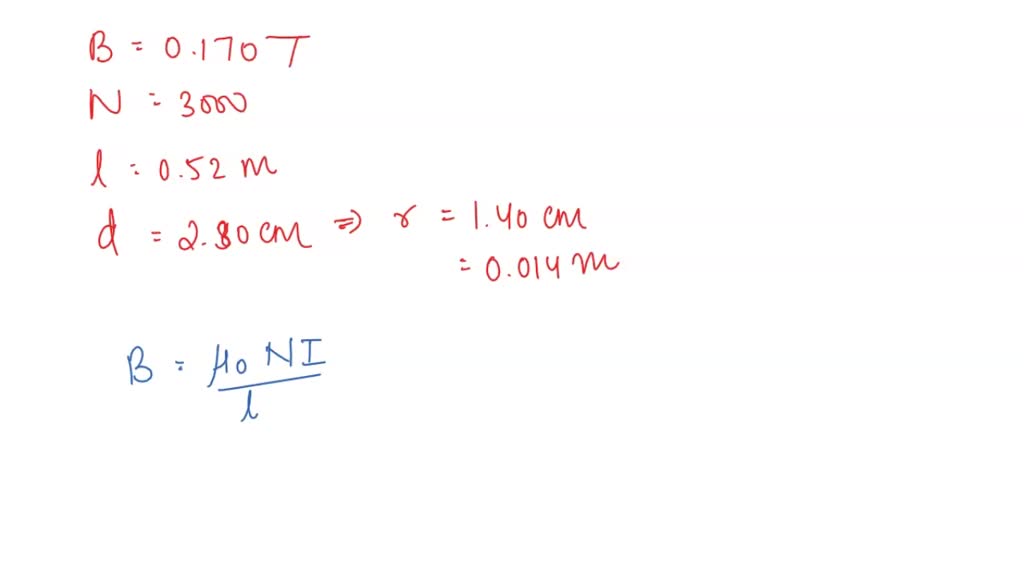 B = 0.170 T
N = 3000
l = 0.52 m
d = 2.80 cm ⇒ r = 1.40 cm
= 0.014 m
B = μ0 NI
l